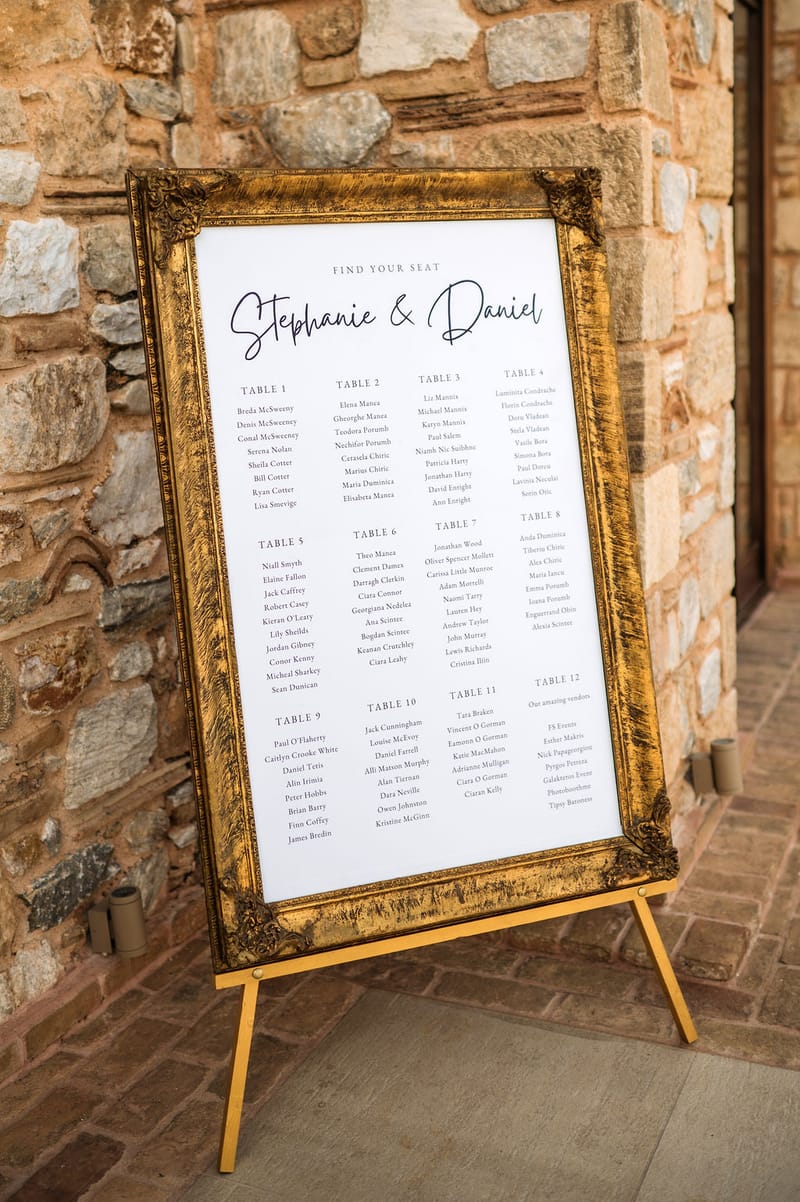 FIND YOUR SEAT
Stephanie & Daniel
TABLE 1
Breda McSweeny
Denis McSweeney
Conal McSweeney
Serena Nolan
Sheila Cotter
Bill Cotter
Ryan Cotter
Lisa Smevige
TABLE 2
Elena Manea
Gheorghe Manea
Teodora Porumb
Nechifor Porumb
Cerasela Chiric
Marius Chiric
Maria Duminica
Elisabeta Manea
TABLE 3
Liz Mannix
Michael Mannix
Karyn Mannix
Paul Salem
Niamh Nic Suibhne
Patricia Harty
Jonathan Harty
David Enright
Ann Enright
TABLE 4
Luminita Condrache
Florin Condrache
Doru Vladean
Stela Vladean
Vasile Bora
Simona Bora
Paul Dorcu
Lavinia Neculai
Sorin Otic
TABLE 5
Niall Smyth
Elaine Fallon
Jack Caffrey
Robert Casey
Kieran O'Leary
Lily Sheilds
Jordan Gibney
Conor Kenny
Micheal Sharkey
Sean Dunican
TABLE 6
Theo Manea
Clement Dames
Darragh Clerkin
Ciara Connor
Georgiana Nedelea
Ana Scintee
Bogdan Scintee
Keanan Crutchley
Ciara Leahy
TABLE 7
Jonathan Wood
Oliver Spencer Mollett
Carissa Little Munroe
Adam Mottrelli
Naomi Tarry
Lauren Hey
Andrew Taylor
John Murray
Lewis Richards
Cristina Iliin
TABLE 8
Anda Duminica
Tiberiu Chiric
Alex Chiric
Maria Iancu
Emma Porumb
Ioana Porumb
Enguerrand Obin
Alexia Scintee
TABLE 9
Paul O'Flaherty
Caitlyn Crooke White
Daniel Tetis
Alin Irimia
Peter Hobbs
Brian Barry
Finn Coffey
James Bredin
TABLE 10
Jack Cunningham
Louise McEvoy
Daniel Farrell
Alli Matson Murphy
Alan Tiernan
Dara Neville
Owen Johnston
Kristine McGinn
TABLE 11
Tara Braken
Vincent O Gorman
Eamonn O Gorman
Katie MacMahon
Adrianne Mulligan
Ciara O Gorman
Ciaran Kelly
TABLE 12
Our amazing vendors
FS Events
Esther Makris
Nick Papageorgiou
Pyrgos Petreza
Galakteros Event
Photobooth​me
Tipsy Baroness